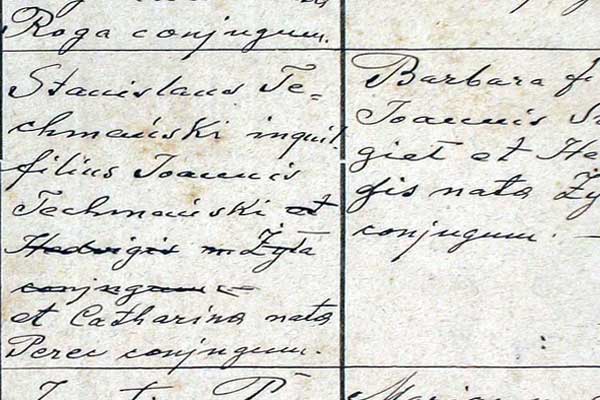 Roga conjugum.
Stanislaus Te=
chmański inquil.
filius Joannis
Techmański et
Hedvigis n. Żyła
conjugum
et Catharina nata
Perec conjugum.
Barbara fi
Joannis
giet et He
gis nata Ży
conjugum. —